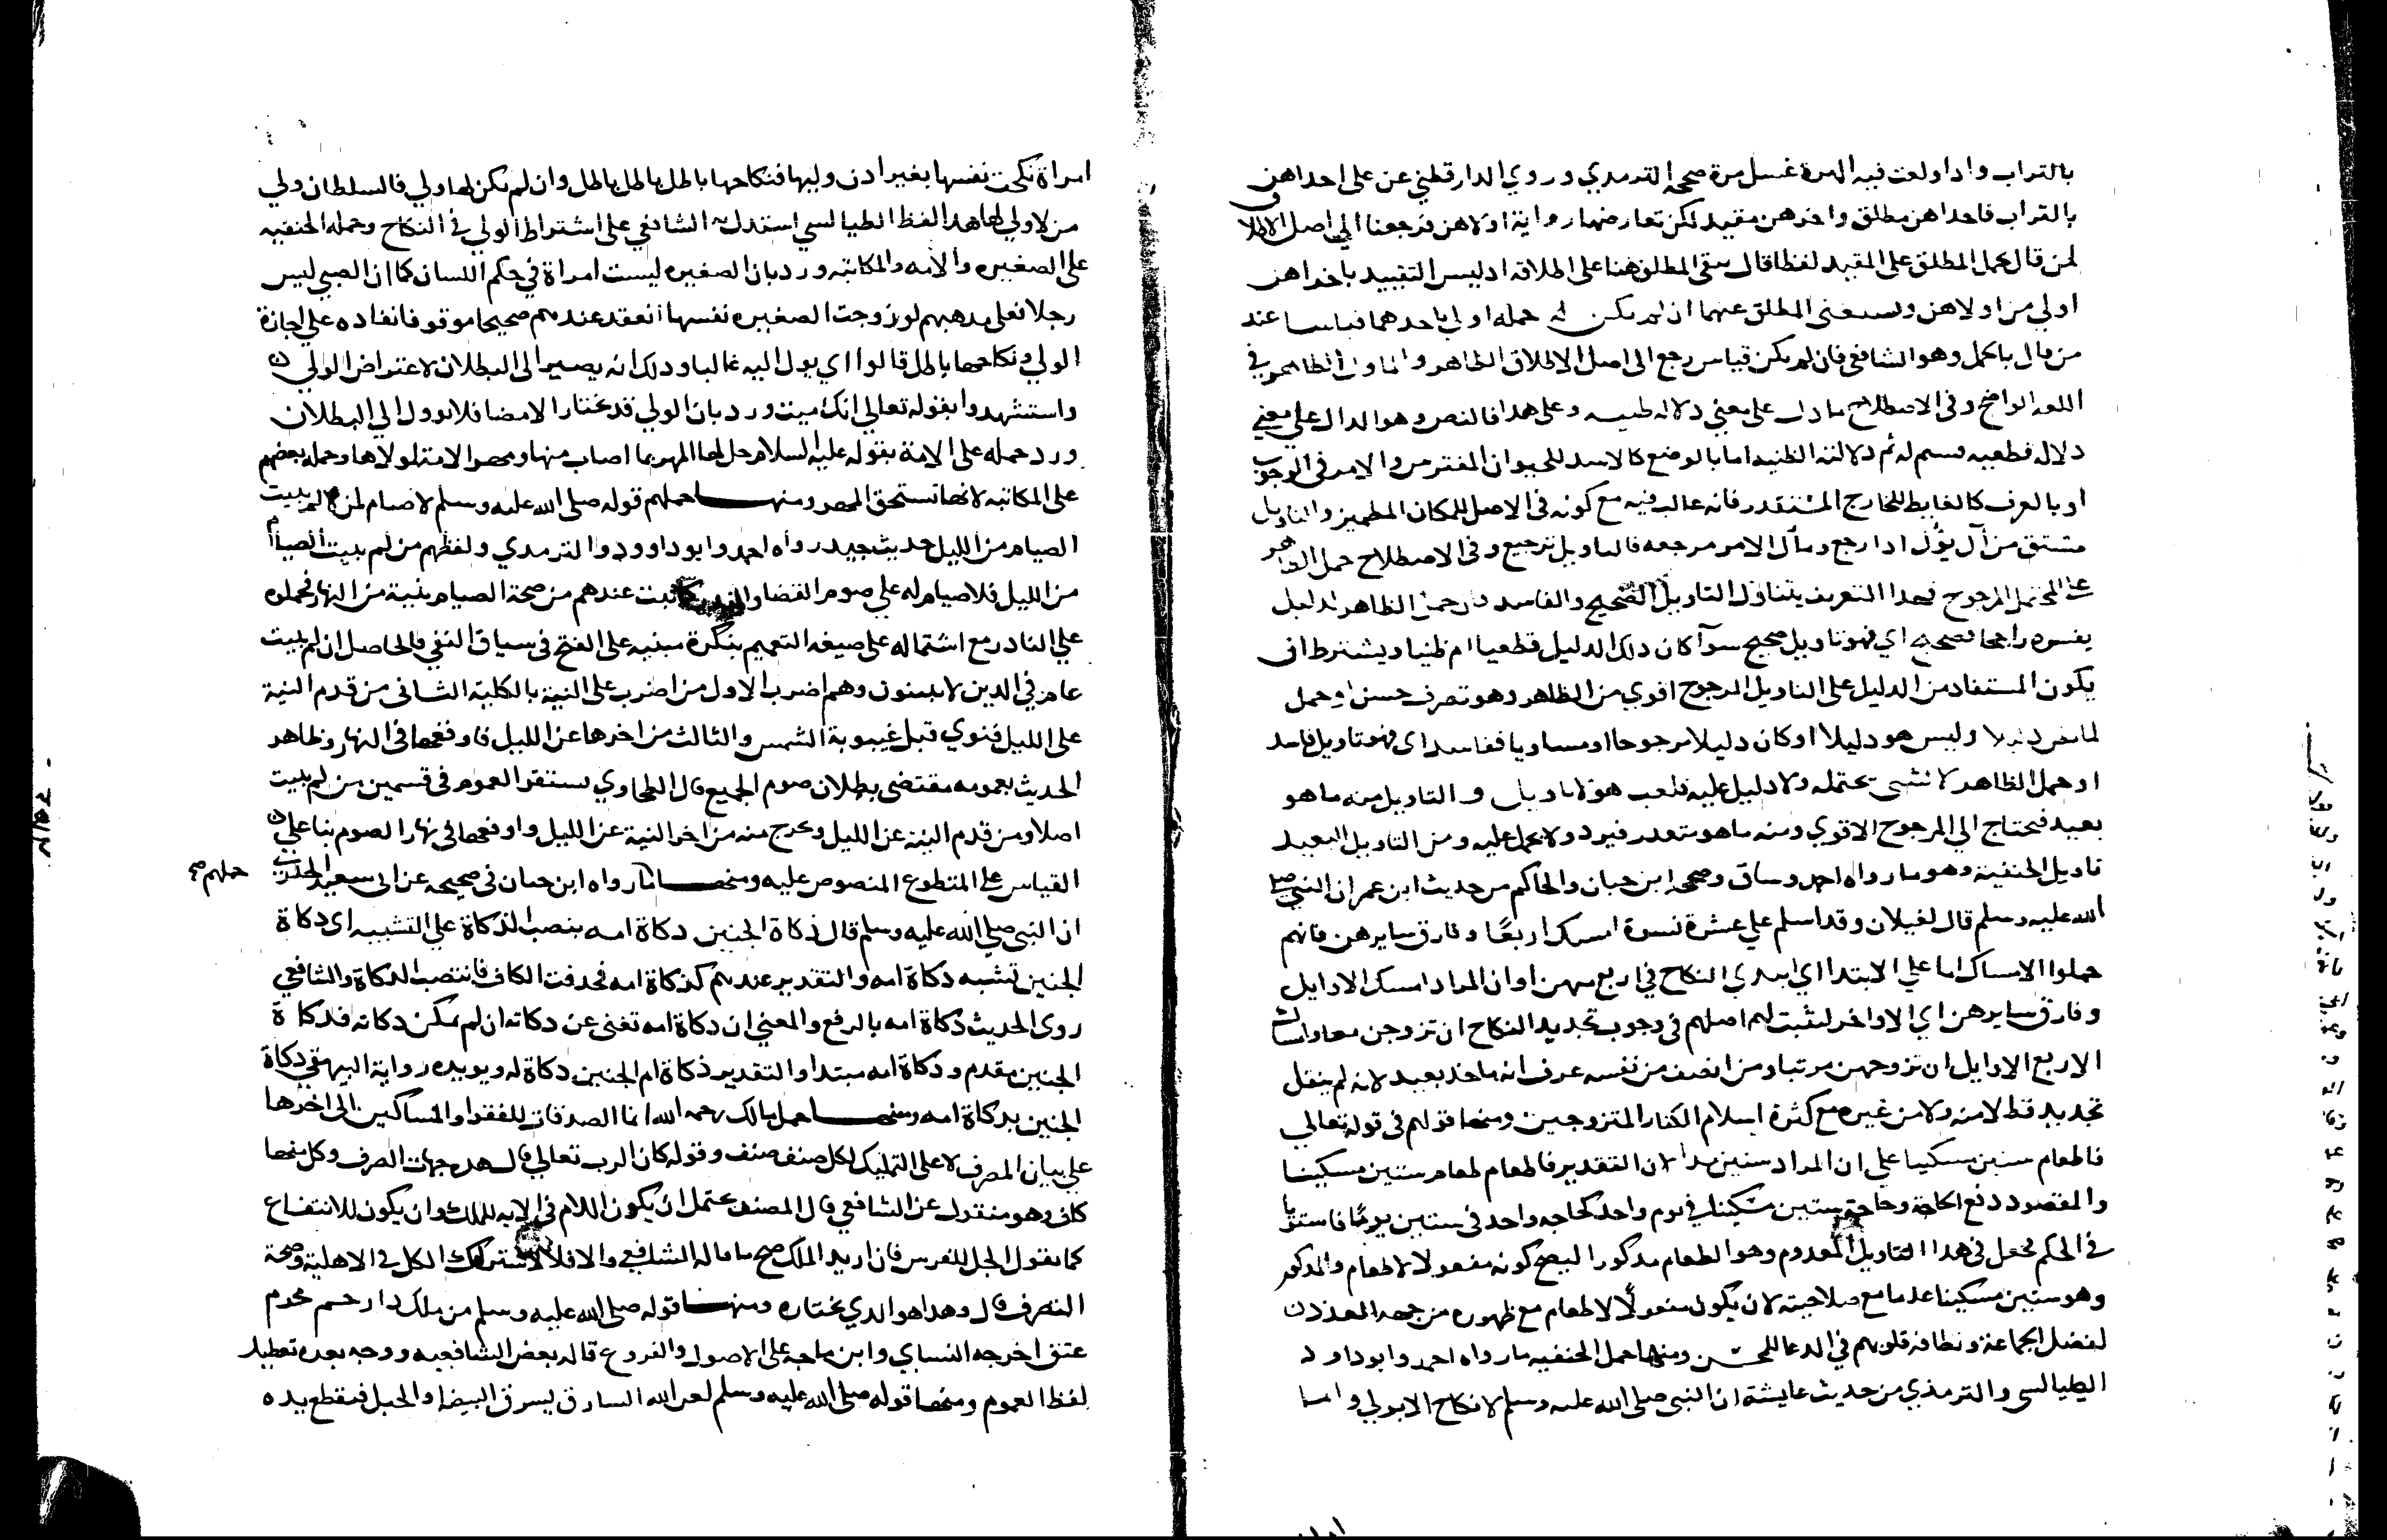 بالتراب واذا ولغت فيه الهرة غسل مرة صححه الترمدي وروي الدارقطني عن علي احداهن
بالتراب فاحداهن مطلق واخرهن مقيد لكن تعارضها رواية اولاهن فرجعنا الي اصل الاطلاق
لمن قال بحمل المطلق على المقيد لفظا قال يبقى المطلق هنا على اطلاقه اد ليس التقييد باخراهن
اولي من اولاهن ويستغنى المطلق عنهما ان لم يكن له حمله اولي باحدهما قياسا عند
من قال بالحمل وهو الشافعي فان لم يكن قياس رجع الى اصل الاطلاق الظاهر والماول الظاهر في
اللغه الواضح وفي الاصطلاح ما دل على معني دلاله ظنيه وعلى هدا فالنص وهو الدال على معني
دلاله قطعيه قسم له ثم دلالته الظنيه اما بالوضع كالاسد للحيوان المفترس والامر في الوجوب
او بالعرف كالغايط للخارج المستقدر فانه غالب فيه مع كونه في الاصل للمكان المطمين والتاويل
مشتق من آل يؤل ادا رجع ومآل الامر مرجعه فالتاويل ترجيع وفي الاصطلاح حمل الظاهر
على المحتمل المرجوح فهدا التعريف يتناول التاويل الصحيح والفاسد فان حمل الظاهر لدليل
يصيره راجحا فصحيح اي فهو تاويل صحيح سوآ كان دلك الدليل قطعيا ام ظنيا ويشترط ان
يكون المستفاد من الدليل على التاويل المرجوح اقوي من الظاهر وهو تصرف حسن او حمل
لما يظن دليلا وليس هو دليلا او كان دليلا مرجوحا او مساويا ففاسد اي فهو تاويل فاسد
او حمل الظاهر لا لشي يحتمله ولا دليل عليه فلعب هو لا تاويل والتاويل منه ما هو
بعيد فيحتاج الي المرجوح الاقوي ومنه ما هو متعدر فيرد ولا يحمل عليه ومن التاويل البعيد
تاويل الحنفية وهو ما رواه احمد وساق وصححه ابن حبان والحاكم من حديث ابن عمر ان النبي صلى
الله عليه وسلم قال لغيلان وقد اسلم علي عشرة نسوة امسك اربعا وفارق سايرهن فانهم
حملوا الامساك اما علي الابتدا اي ابتدي النكاح في اربع منهن او ان المراد امسك الاوايل
وفارق سايرهن اي الاواخر لثبت لهم اصلهم في وجوب تجديد النكاح ان تزوجن معا وامساك
الاربع الاوايل ان تزوجهن مرتبا ومن انصف من نفسه عرف انه ماخد بعيد لانه لم ينقل
تجديد قط لا منه ولا من غيره مع كثرة اسلام الكفار المتزوجين ومنها قولهم في قوله تعالي
فاطعام ستين مسكينا علي ان المراد ستين مدا لان التقدير فاطعام طعام ستين مسكينا
والمقصود دفع الحاجة وحاجة ستين مسكينا في يوم واحد كحاجه واحد في ستين يوما فاستويا
في الحكم فجعل في هدا التاويل المعدوم وهو الطعام مدكورا ليصح كونه مفعولا لاطعام والمدكور
وهو ستين مسكينا عدما مع صلاحيته لان يكون مفعولا لاطعام مع ظهوره من جهه العدد ان
لفضل الجماعة وتظافر قلوبهم في الدعا للمحسن ومنها حمل الحنفيه ما رواه احمد وابو داود
الطيالسي والترمذي من حديث عايشة ان النبي صلى الله عليه وسلم لا نكاح الا بولي وايما
امراة نكحت نفسها بغير ادن وليها فنكاحها باطل باطل باطل وان لم يكن لها ولي فالسلطان ولي
من لا ولي لها هدا لفظ الطيالسي استدل به الشافعي على اشتراط الولي في النكاح وحمله الحنفيه
على الصغيره والامه والمكاتبه ورد بان الصغيره ليست امراة في حكم اللسان كما ان الصبي ليس
رجلا فعلى مدهبهم لو زوجت الصغيره نفسها انعقد عندهم صحيحا موقوفا نفاده علي اجازة
الولي ونكاحها باطل قالوا اي يول اليه غالبا ودلك انه يصير الى البطلان لاعتراض الولي
واستشهدوا بقوله تعالي انك ميت ورد بان الولي قد يختار الامضا فلا يوول الي البطلان
ورد حمله على الامة بقوله عليه السلام جعل لها المهر بما اصاب منها ومهر الامة لمولاها وحمله بعضهم
على المكاتبه لانها تستحق المهر ومنها حملهم قوله صلى الله عليه وسلم لا صيام لمن لم يبيت
الصيام من الليل حديث جيد رواه احمد وابو داوود والترمدي ولفظهم من لم يبيت الصيام
من الليل فلا صيام له علي صوم القضا والندر لما ثبت عندهم من صحة الصيام بنية من النهار فحملوه
علي النادر مع اشتماله على صيغه التعميم بنكرة مبنيه على الفتح في سياق النفي فالحاصل ان لم يبيت
عام في الدين لا يبيتون وهم اضرب الاول من اضرب على النية بالكلية الثاني من قدم النية
على الليل فنوي قبل غيبوبة الشمس والثالث من اخرها عن الليل فاوقعها في النهار وظاهر
الحديث بعمومه مقتضي بطلان صوم الجميع قال الطحاوي يستقر العموم في قسمين من لم يبيت
اصلا ومن قدم النية عن الليل وخرج منه من اخر النية عن الليل واوقعها في نهار الصوم بنا علي
القياس على المتطوع المنصوص عليه ومنها ما رواه ابن حبان في صحيحه عن ابي سعيد الخدري
حملهم صح
ان النبي صلي الله عليه وسلم قال ذكاة الجنين دكاة امه بنصب الذكاة علي التشبيه اي دكاة
الجنين تشبه دكاة امه والتقدير عندهم كذكاة امه فحدفت الكاف فانتصب الدكاة والشافعي
روى الحديث ذكاة امه بالرفع والمعني ان دكاة امه تغني عن دكاته ان لم تمكن دكاته فدكاة
الجنين مقدم ودكاة امه مبتدا والتقدير ذكاة ام الجنين دكاة له ويويده رواية البيهقي دكاة
الجنين بدكاة امه ومنها حمل مالك رحمه الله انما الصدقات للفقرا والمساكين الى اخرها
علي بيان المصرف لا على التمليك لكل صنف صنف وقوله كان الرب تعالي قال هده جهات الصرف وكل منها
كافي وهو منقول عن الشافعي قال المصنف يحتمل ان يكون اللام في الايه للملك وان يكون للانتفاع
كما نقول الجل للفرس فان اريد الملك صح ما قاله الشافعي والا فلا لاشتراك الكل في الاهلية وصحة
التصرف قال وهدا هو الدي نختاره ومنها قوله صلى الله عليه وسلم من ملك دا رحم محرم
عتق اخرجه النساي وابن ماجه على الاصول والفروع قاله بعض الشافعيه ووجه بعده تعطيل
لفظ العموم ومنها قوله صلى الله عليه وسلم لعن الله السارق يسرق البيضة والحبل فتقطع يده